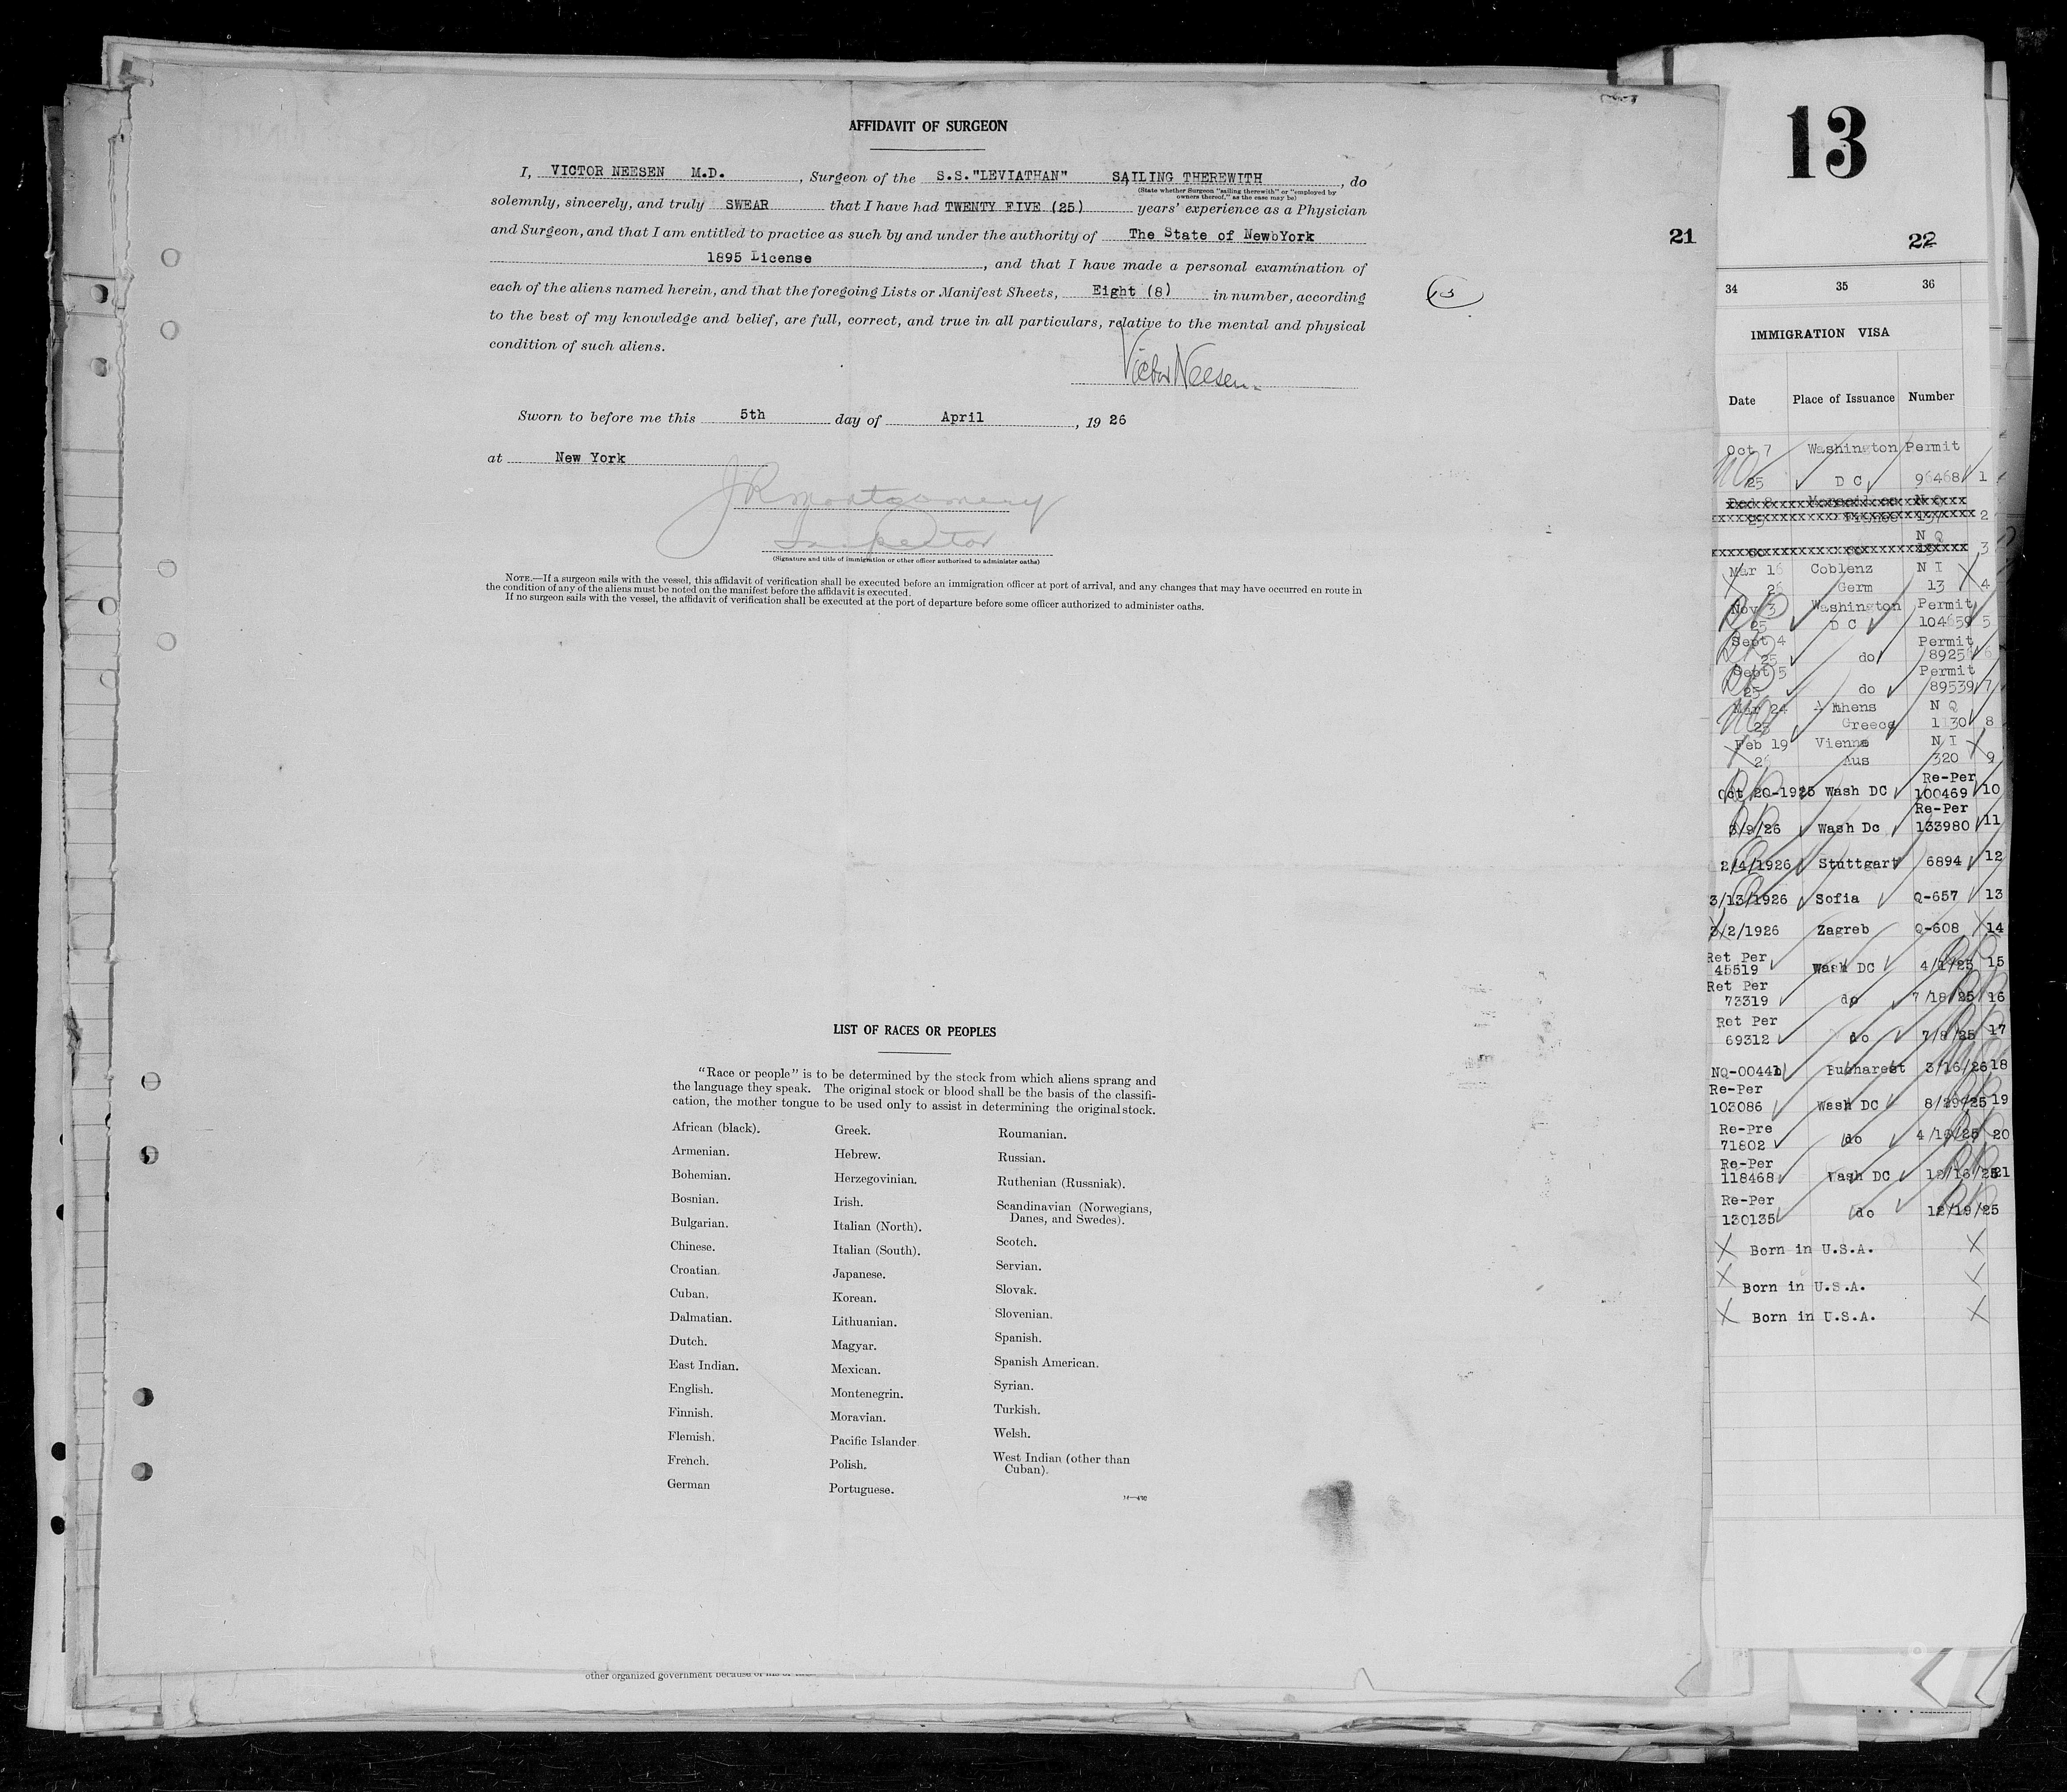 AFFIDAVIT OF SURGEON
I, VICTOR NEESEN M.D., Surgeon of the S.S."LEVIATHAN" SAILING THEREWITH, do
(State whether Surgeon "sailing therewith" or "employed by
owners thereof," as the case may be)
solemnly, sincerely, and truly SWEAR that I have had TWENTY FIVE (25) years' experience as a Physician
and Surgeon, and that I am entitled to practice as such by and under the authority of The State of NewbYork
1895 License, and that I have made a personal examination of
each of the aliens named herein, and that the foregoing Lists or Manifest Sheets, Eight (8) in number, according
to the best of my knowledge and belief, are full, correct, and true in all particulars, relative to the mental and physical
condition of such aliens.
Victor Neesen
Sworn to before me this 5th day of April, 1926
at New York
J R Montgomery
Inspector
(Signature and title of immigration or other officer authorized to administer oaths)
NOTE.—If a surgeon sails with the vessel, this affidavit of verification shall be executed before an immigration officer at port of arrival, and any changes that may have occurred en route in
the condition of any of the aliens must be noted on the manifest before the affidavit is executed.
If no surgeon sails with the vessel, the affidavit of verification shall be executed at the port of departure before some officer authorized to administer oaths.
LIST OF RACES OR PEOPLES
"Race or people" is to be determined by the stock from which aliens sprang and
the language they speak. The original stock or blood shall be the basis of the classifi-
cation, the mother tongue to be used only to assist in determining the original stock.
African (black).
Armenian.
Bohemian.
Bosnian.
Bulgarian.
Chinese.
Croatian.
Cuban.
Dalmatian.
Dutch.
East Indian.
English.
Finnish.
Flemish.
French.
German
Greek.
Hebrew.
Herzegovinian.
Irish.
Italian (North).
Italian (South).
Japanese.
Korean.
Lithuanian.
Magyar.
Mexican.
Montenegrin.
Moravian.
Pacific Islander
Polish.
Portuguese.
Roumanian.
Russian.
Ruthenian (Russniak).
Scandinavian (Norwegians,
Danes, and Swedes).
Scotch.
Servian.
Slovak.
Slovenian.
Spanish.
Spanish American.
Syrian.
Turkish.
Welsh.
West Indian (other than
Cuban).
other organized government because of his or
13
21
22
34 35 36
IMMIGRATION VISA
Date Place of Issuance Number
Oct 7 Washington Permit
25 D C 96468 1
2
N Q
3
Mar 16 Coblenz N I
26 Germ 13 4
Nov 3 Washington Permit
25 D C 104659 5
Sept 4 Permit
25 do 8925 6
Sept 5 Permit
25 do 89539 7
Mar 24 Athens N Q
Greece 1130 8
Feb 19 Vienna N I
26 Aus 320 9
Re-Per
Oct 20-1925 Wash DC 100469 10
Re-Per
3/9/26 Wash Dc 133980 11
2/4/1926 Stuttgart 6894 12
3/13/1926 Sofia Q-657 13
3/2/1926 Zagreb Q-608 14
Ret Per
45519 Wash DC 4/1/25 15
Ret Per
73319 do 7/18/25 16
Ret Per
69312 do 7/8/25 17
NQ-00441 Bucharest 3/16/26 18
Re-Per
103086 Wash DC 8/29/25 19
Re-Pre
71802 do 4/16/25 20
Re-Per
118468 Wash DC 12/16/25 21
Re-Per
130135 do 12/19/25
Born in U.S.A.
Born in U.S.A.
Born in U.S.A.